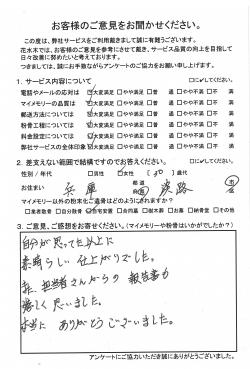 お客様のご意見をお聞かせください。
この度は、弊社サービスをご利用頂きまして誠に有難うございます。
花水木では、お客様のご意見を参考にさせて戴き、サービス品質の向上を目指して
日々改善に努めたいと考えております。
つきましては、誠にお手数ながらアンケートのご協力をお願い申し上げます。
1. サービス内容について
□に✓してください。
電話やメールの対応は ☑大変満足 □やや満足 □普 通 □やや不満 □不 満
マイメモリーの品質は ☑大変満足 □やや満足 □普 通 □やや不満 □不 満
郵送方法については ☑大変満足 □やや満足 □普 通 □やや不満 □不 満
粉骨工程については ☑大変満足 □やや満足 □普 通 □やや不満 □不 満
料金設定については ☑大変満足 □やや満足 □普 通 □やや不満 □不 満
弊社サービスの全体印象 ☑大変満足 □やや満足 □普 通 □やや不満 □不 満
2. 差支えない範囲で結構ですのでお答えください。
□に✓してください。
性別／年代 □男性 □女性 ( 50 歳)代
お住まい 兵庫 都道府県 淡路 市
マイメモリー以外の粉末化ご遺骨はどのようにされますか?
□散骨 □自宅安置 □樹木葬 □お墓 □納骨堂 □その他
3. ご意見、ご感想をお寄せください。(マイメモリーや粉骨はいかがでしたか?)
自分が思ってた以上に
素晴らしい仕上がりでした。
又、担当者さんからの報告書も
嬉しく思いました。
本当に ありがとうございました。
アンケートにご協力いただき誠にありがとうございました。